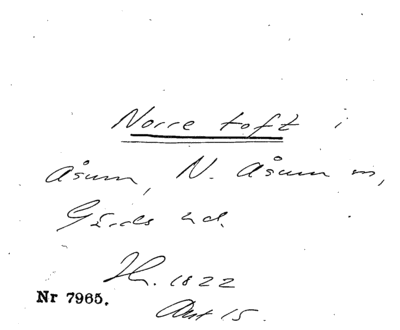 Norre toft i
Åsum, N. Åsum sn,
Gärds hd.
Hr. 1822
Akt 15.
Nr 7965.